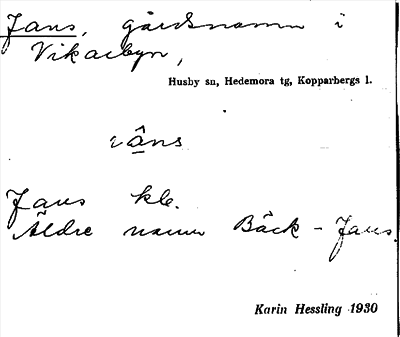 Jans, gårdsnamn i
Vikarbyn,
Husby sn, Hedemora tg, Kopparbergs l.
Jans kle.
Äldre namn Bäck-Jans.
Karin Hessling 1930